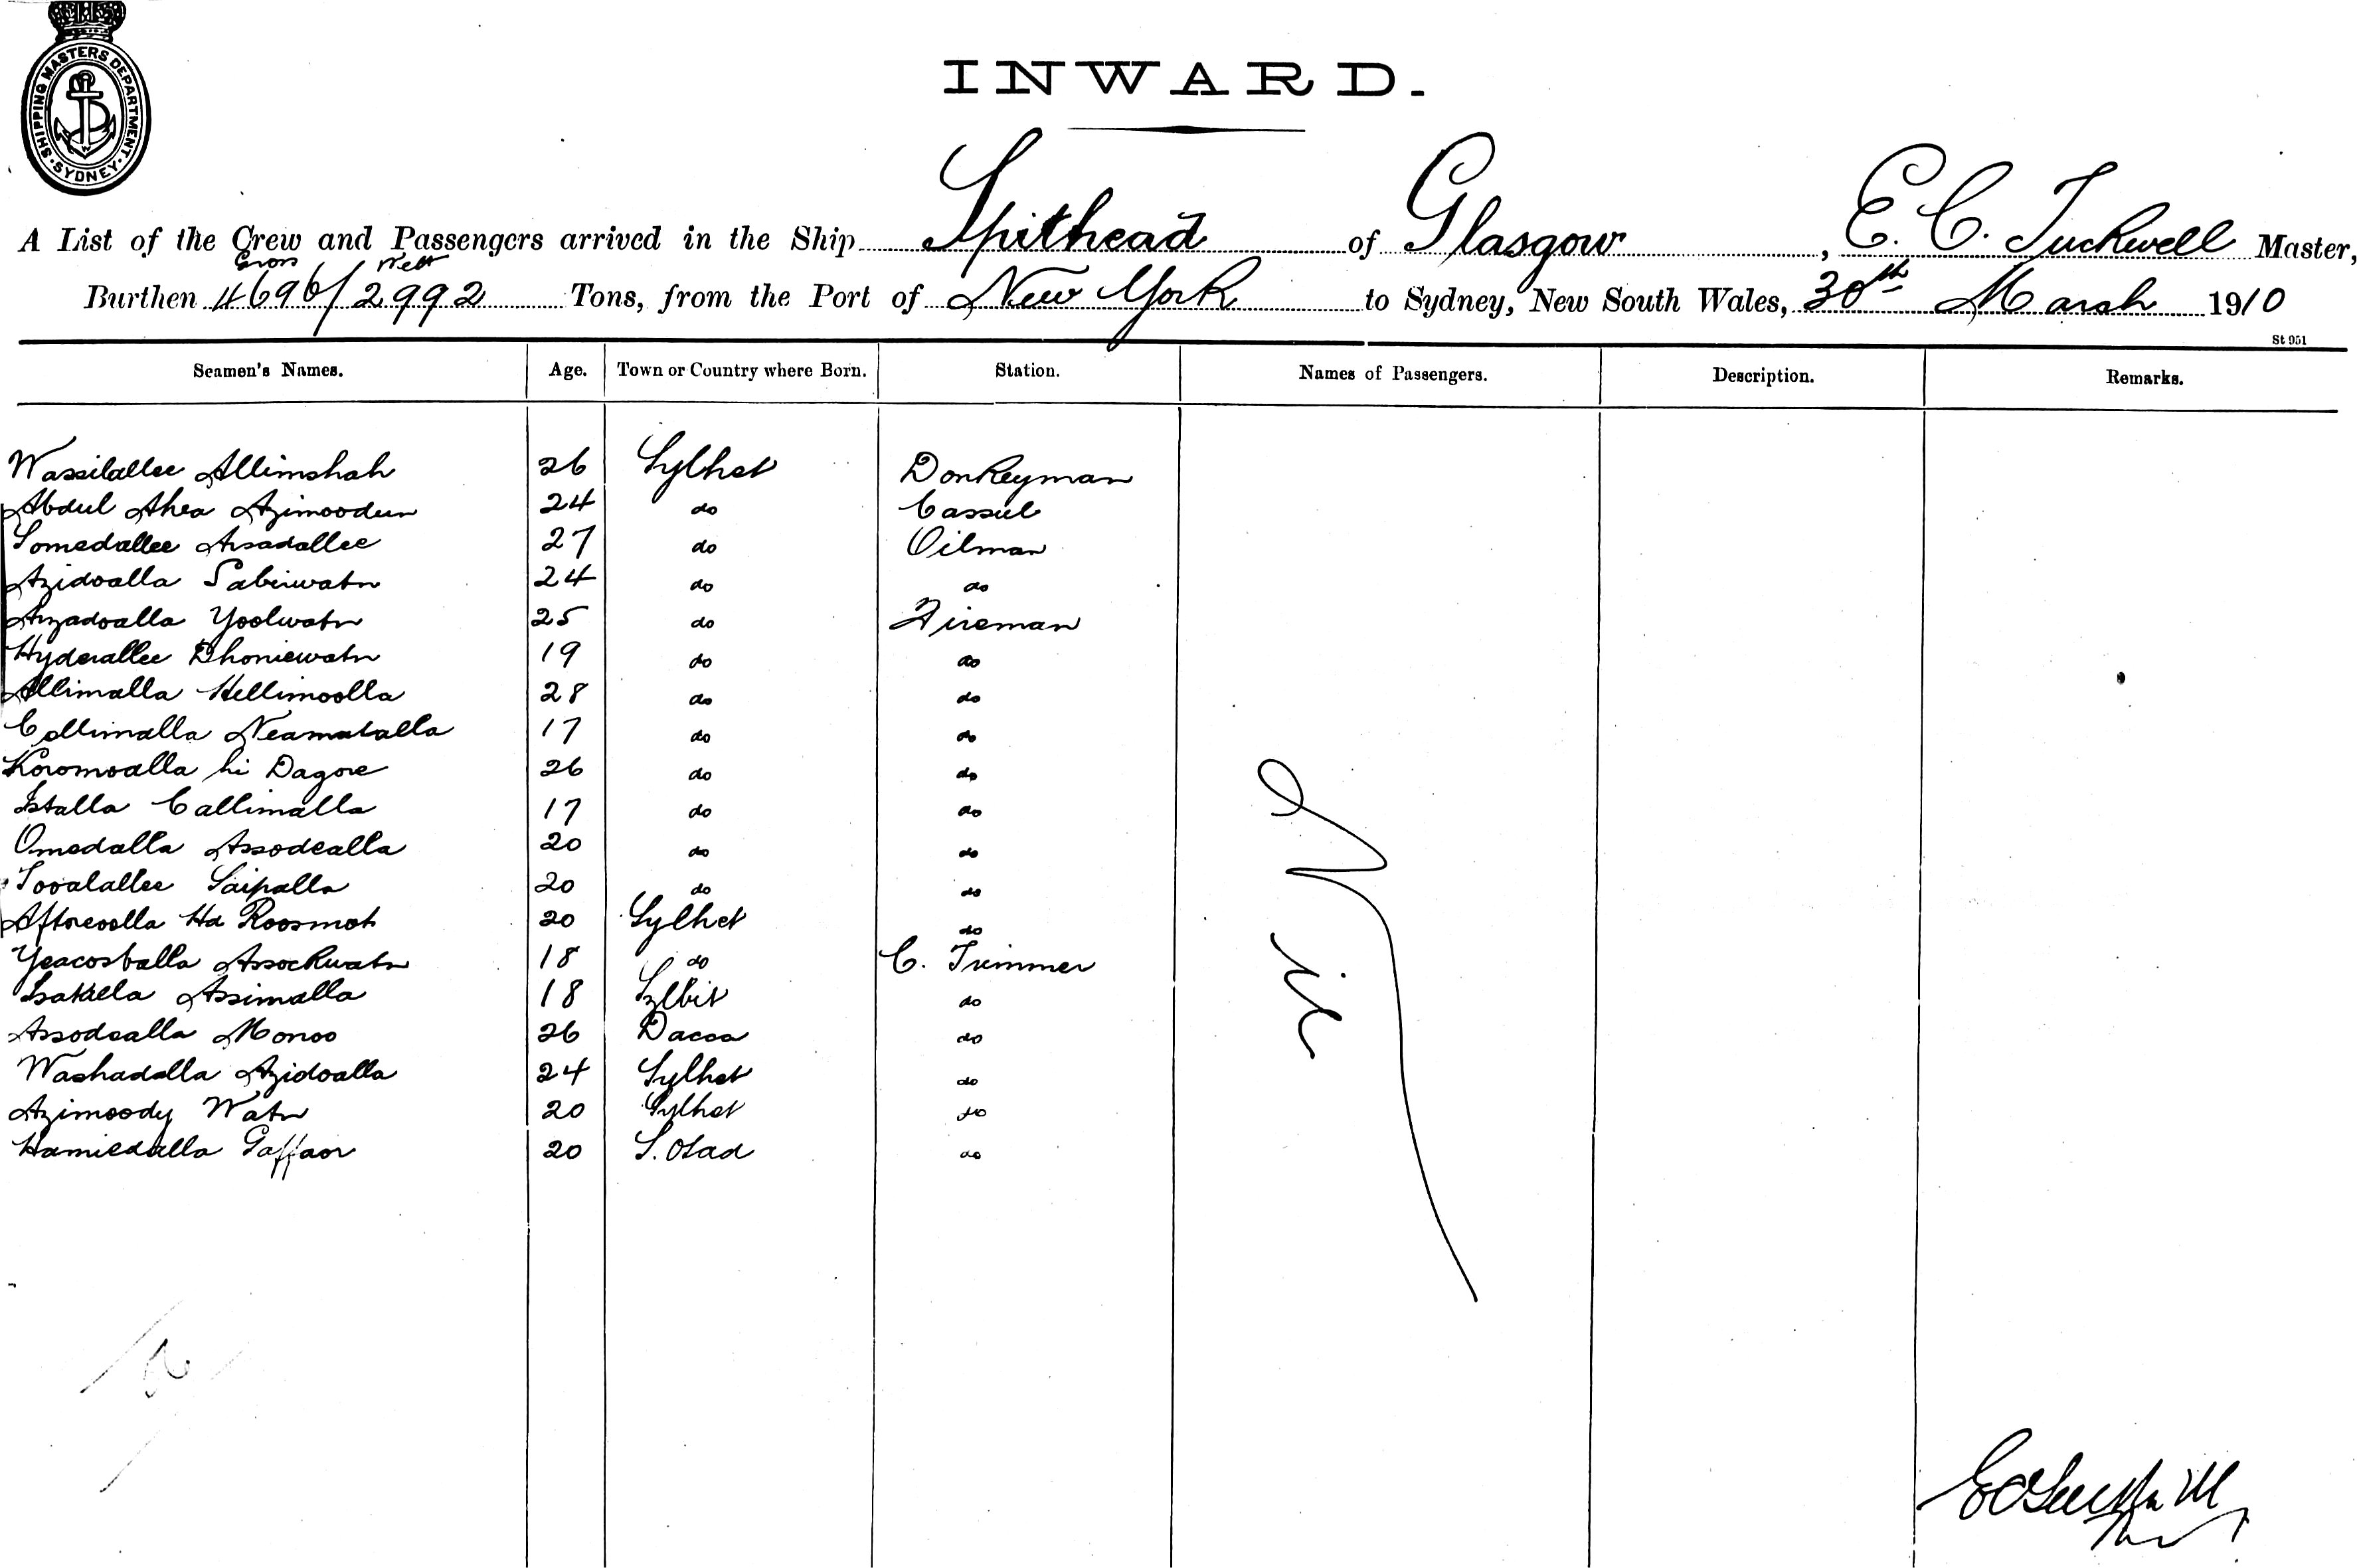 SHIPPING MASTERS DEPARTMENT · SYDNEY ·
INWARD.
A List of the Crew and Passengers arrived in the Ship Spithead of Glasgow, E. C. Tuckwell Master,
Gross Nett
Burthen 4696/2992 Tons, from the Port of New York to Sydney, New South Wales, 30th March 1910
St 951
Seamen's Names. Age. Town or Country where Born. Station. Names of Passengers. Description. Remarks.
Wassilallee Allimshah 26 Sylhet Donkeyman
Abdul Ahea Azimoodeen 24 do Cassul
Somedallee Arsadallee 27 do Oilman
Azidoalla Sabirwatn 24 do do
Arzadoalla Yoolwatn 25 do Fireman
Hyderallee Dhoniewatn 19 do do
Allimalla Hellimoolla 28 do do
Collimalla Neamatalla 17 do do
Koromoalla hi Dagore 26 do do
Istalla Callimalla 17 do do
Omedalla Assodealla 20 do do
Tovalallee Saipalla 20 do do
Aftreoolla Hd Roosmot 20 Sylhet do
Yeacosballa Assockwatn 18 do C. Trimmer
Isakella Assimalla 18 Sylbit do
Assodealla Monoo 26 Dacca do
Washadalla Azidoalla 24 Sylhet do
Azimoody Watn 20 Sylhet do
Hamiedalla Gaffaor 20 S. Olad do
Nil